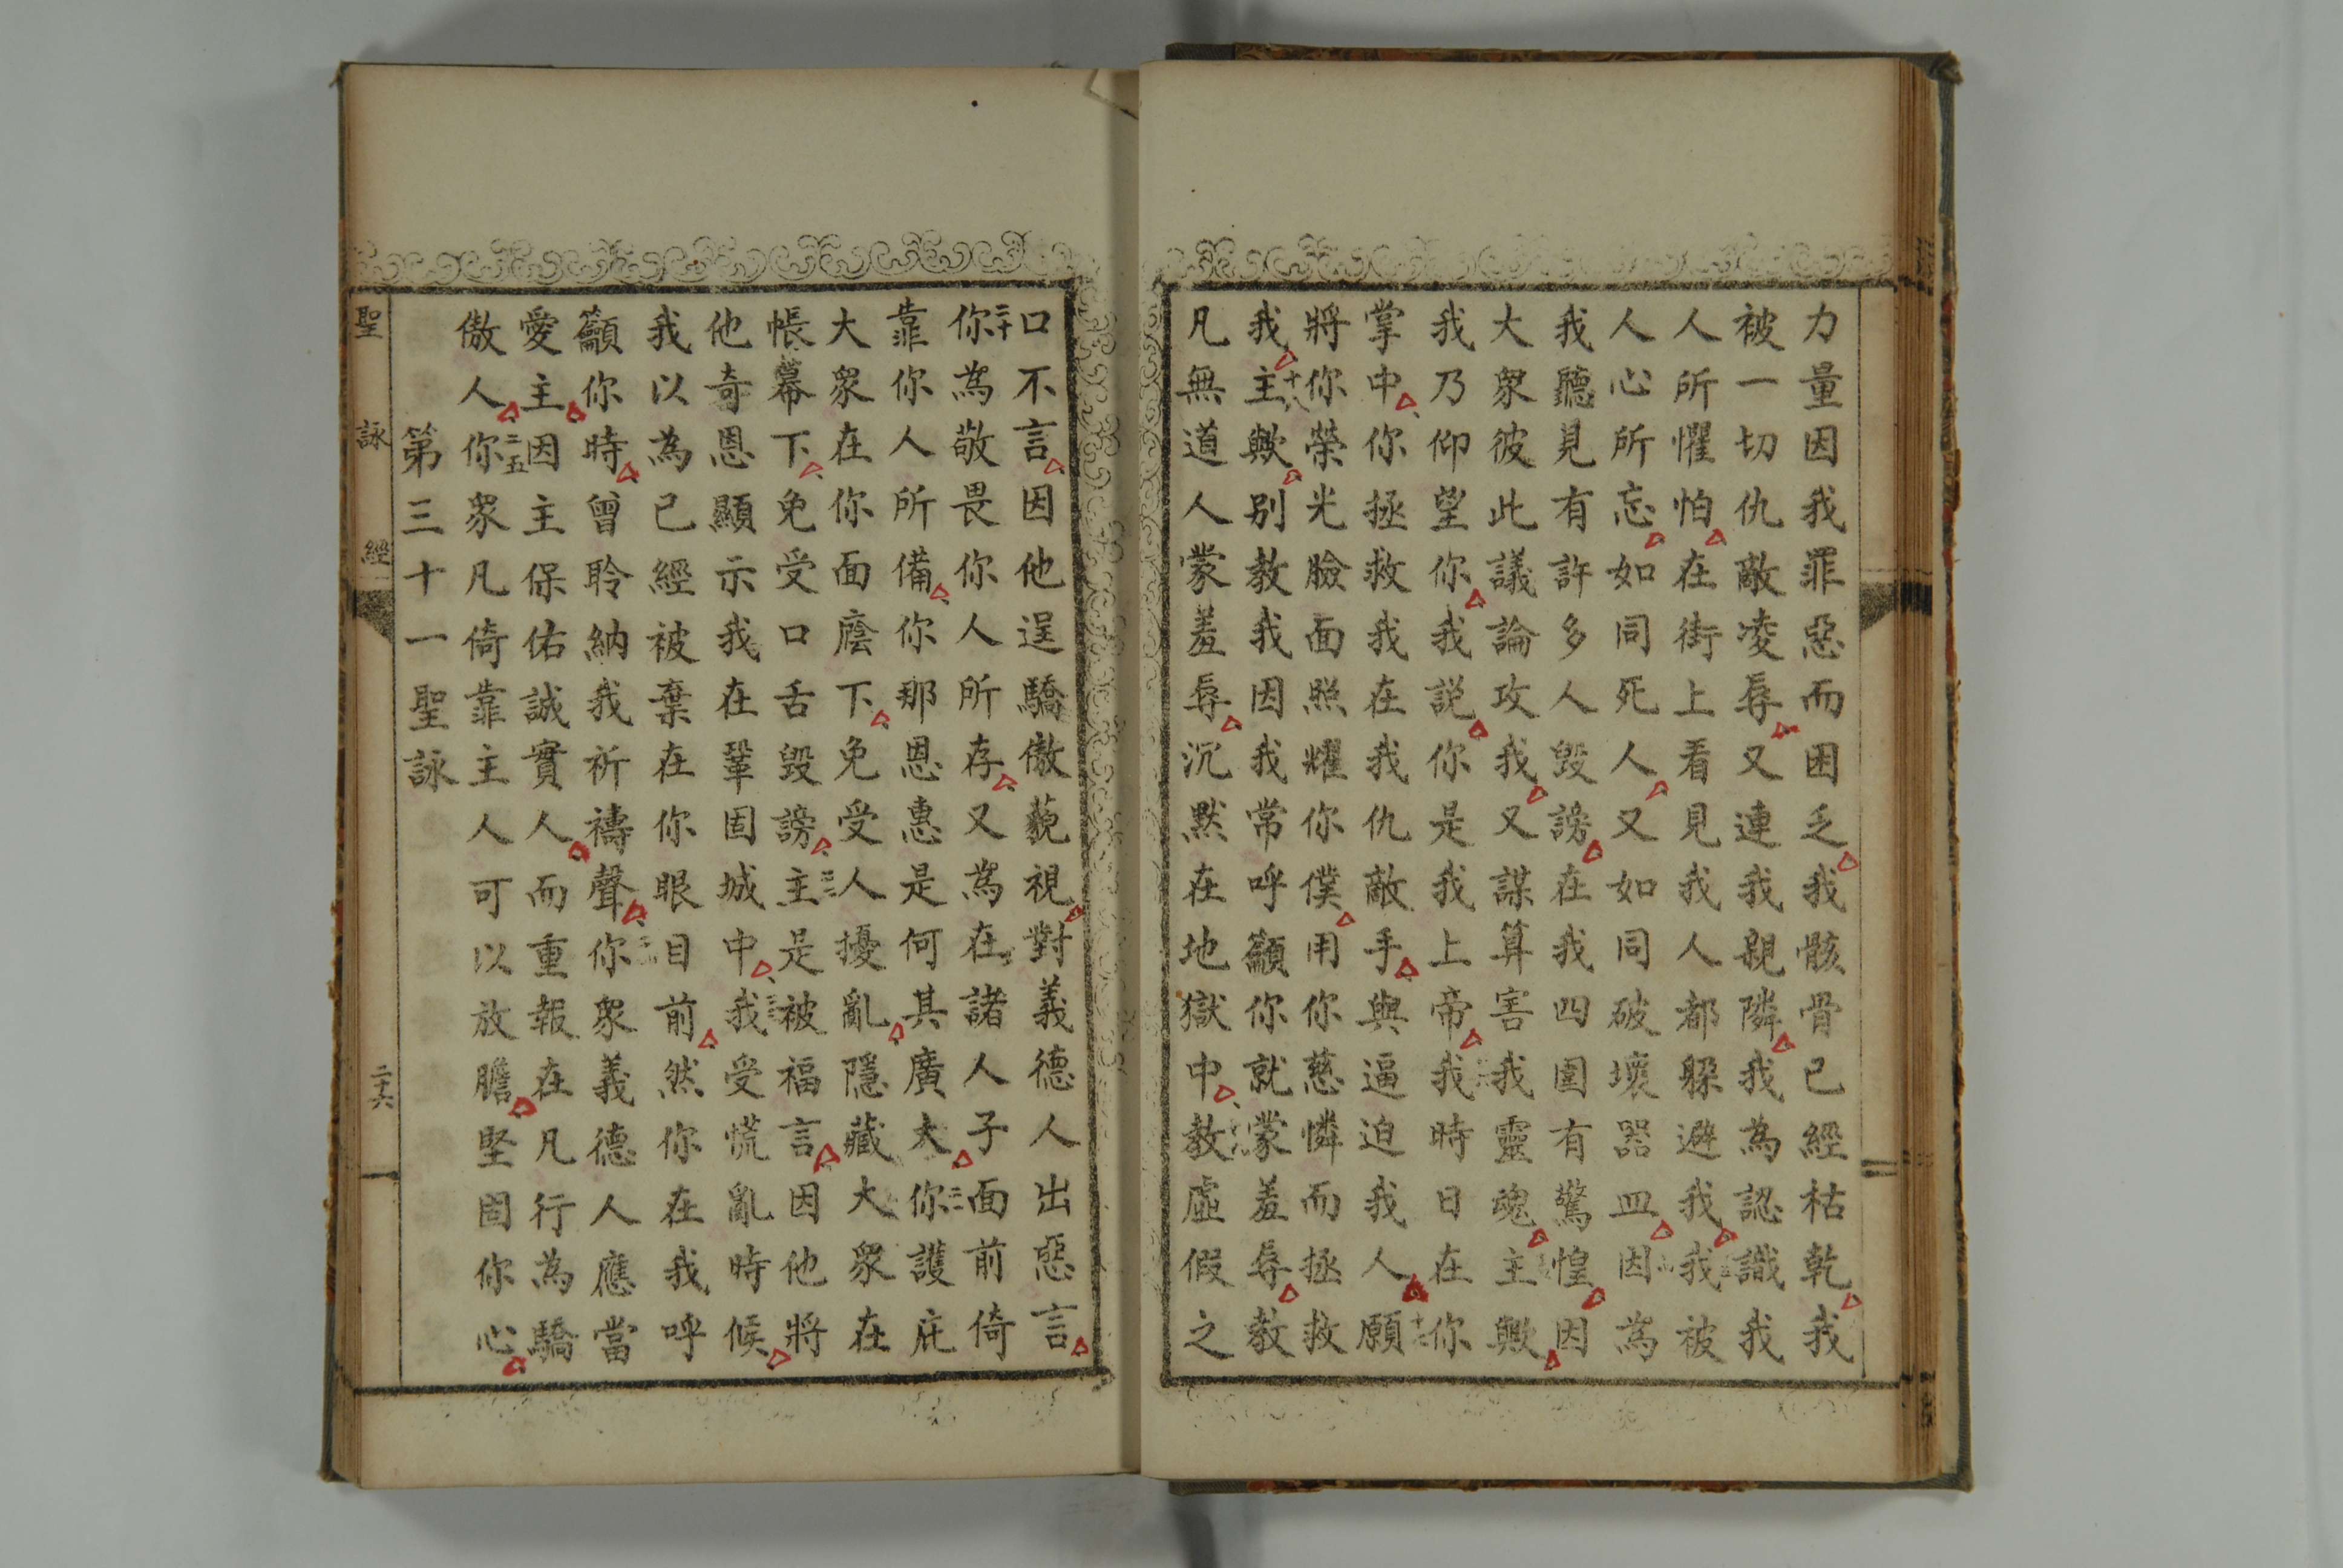 力量因我罪惡而困乏我骸骨已經枯乾我
被一切仇敵凌辱又連我親隣我為認識我
人所懼怕在街上看見我人都躲避我我被
人心所忘如同死人又如同破壞器皿因為
我聽見有許多人毀謗在我四圍有驚惶因
大衆彼此議論攻我又謀算害我靈魂主歟
我乃仰望你我説你是我上帝我時日在你
掌中你拯救我在我仇敵手與逼迫我人願
將你榮光臉面照耀你僕用你慈憐而拯救
我主歟別教我因我常呼籲你就蒙羞辱教
凡無道人蒙羞辱沉默在地獄中教虛假之
口不言因他逞驕傲藐視對義德人出惡言
二十
你為敬畏你人所存又為在諸人子面前倚
靠你人所備你那恩惠是何其廣大你護庇
大衆在你面廕下免受人擾亂隱藏大衆在
帳幕下免受口舌毀謗主是被福言因他將
他奇恩顯示我在鞏固城中我受慌亂時候
我以為已經被棄在你眼目前然你在我呼
籲你時曾聆納我祈禱聲你衆義德人應當
愛主因主保佑誠實人而重報在凡行為驕
二五
傲人你衆凡倚靠主人可以放膽堅固你心
第三十一聖詠
聖詠經
二十六